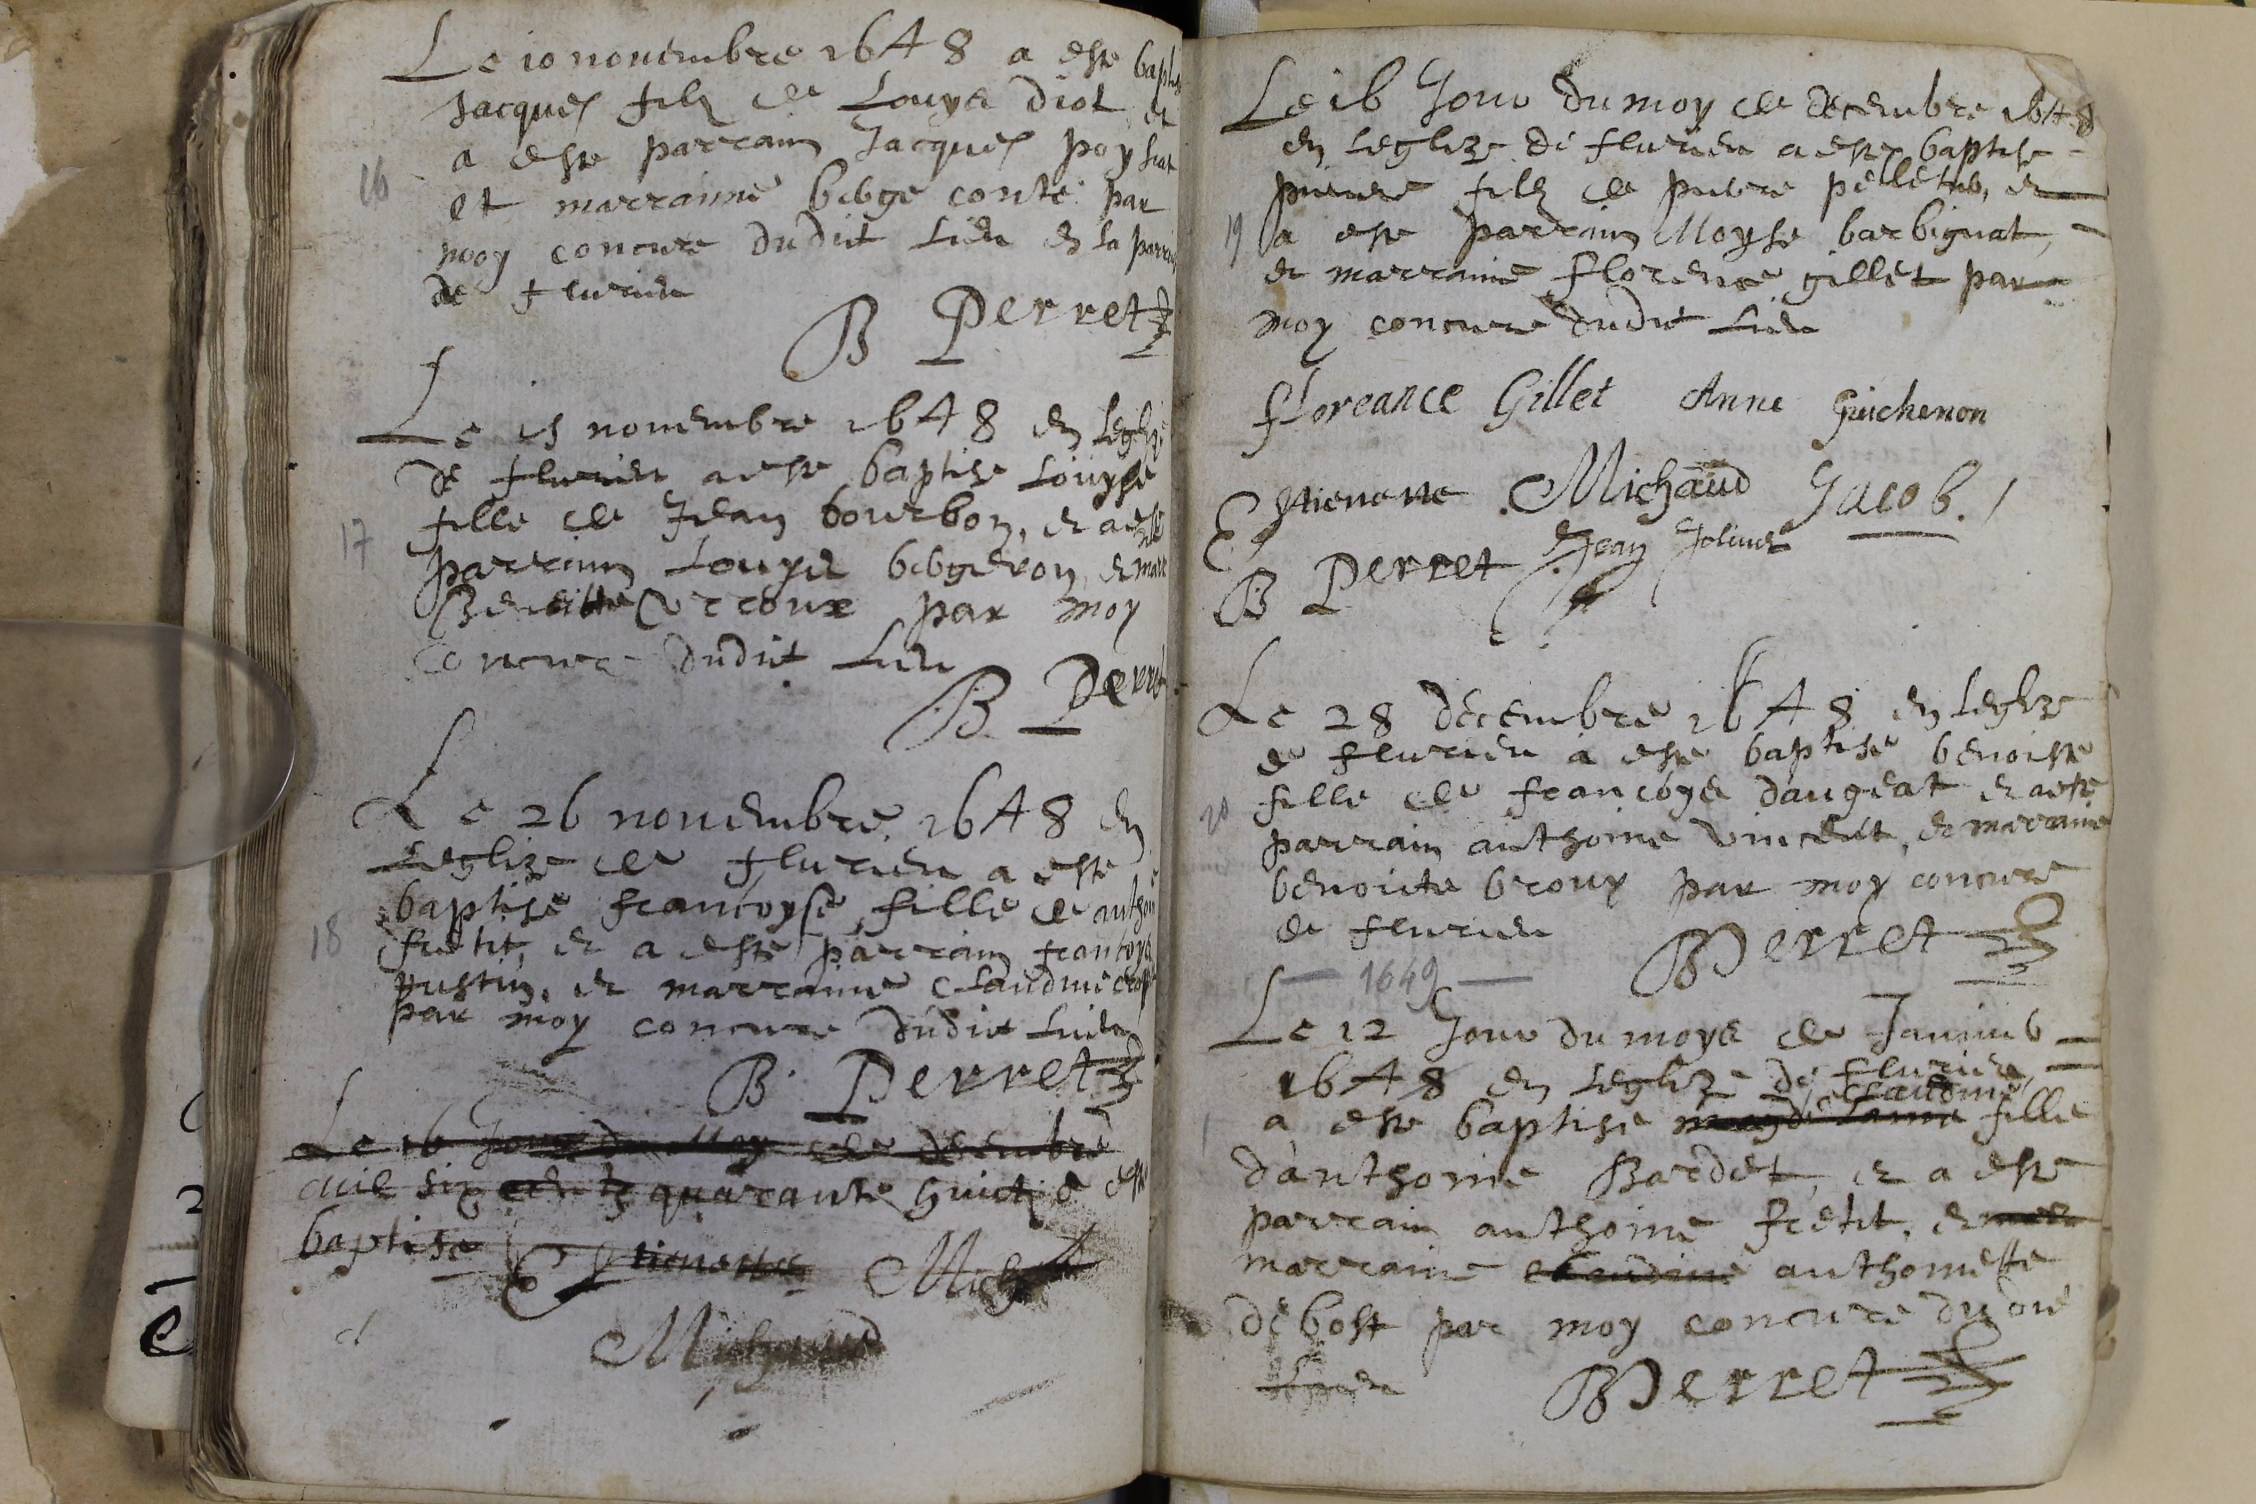 Le 10 nouembre 1648 a este bapti
Jacques filz de Louys diot et
a este parrain Jacques poysiat
16
et marraine b conte par
moy concure dudit lieu en la parroi
de flurieu
B Perret
Le 15 nouembre 1648 en leglize
de flurieu a este baptize Louyse
fille de Jean bourbon, et a este
17
parrain Louys bergeron et marr
Benoitte Verroux par moy
concure dudit lieu
B Perret
Le 26 nouembre 1648 en
leglize de flurieu a este
baptise francoyse fille de anthoi
18
fretit, et a este parrain francoys
pustin, et marraine Claudine
par moy concure dudit lieu
B Perret
Le 16 Jour du Moy de decembre
mil six centz quarante huict a este
baptise Estienette Mich
Michaud
Le 16 Jour du moy de decembre 1648
en leglize de flurieu a este baptise
pierre filz de pierre pelletier, et
19
a este parrain Moyse barbignat,
et marraine florence gillet par
moy concure dudit lieu
ffloreance Gillet Anne Guichenon
Estienette Michaud Jacob.
B Perret Jean Joliuet
Le 28 decembre 1648 en leglize
de flurieu a este baptise benoiste
fille de francoys daugeat et a este
20
parrain anthoine vincent, et marraine
benoiste broux par moy concure
de flurieu
BPerret
1649
Le 12 Jour du moys de Januier
1648 en leglize de flurieu
Claudine
1
a este baptise magdelaine fille
d'anthoine Bardet, et a este
parrain anthoine fretit, et mar
marraine claudine anthoinette
debost par moy concure du dit
lieu
BPerret